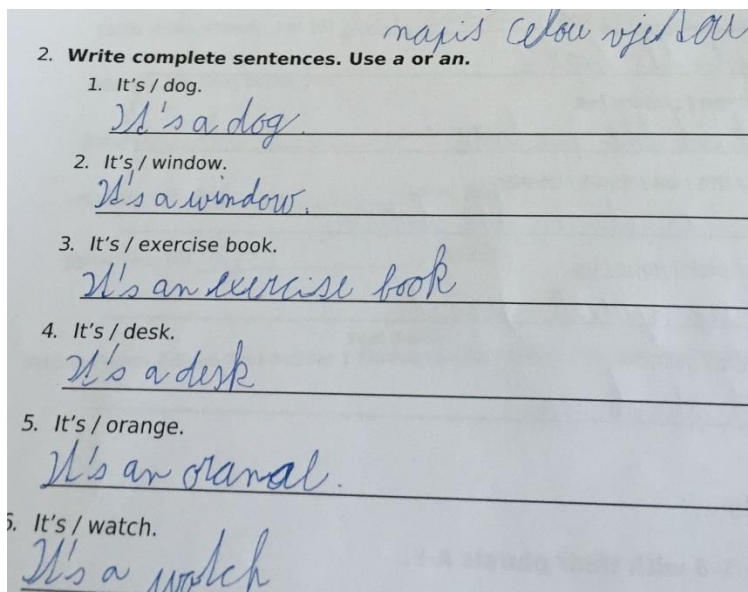 napis celou vjetou
2. Write complete sentences. Use a or an.
1. It's / dog.
It's a dog.
2. It's / window.
It's a window.
3. It's / exercise book.
It's an exercise book
4. It's / desk.
It's a desk
5. It's / orange.
It's an oranal.
6. It's / watch.
It's a watch